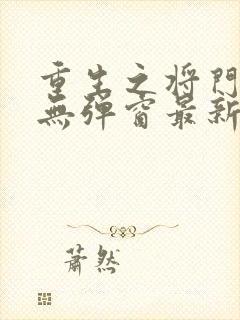 重生之将門
無彈窗最新
蕭然